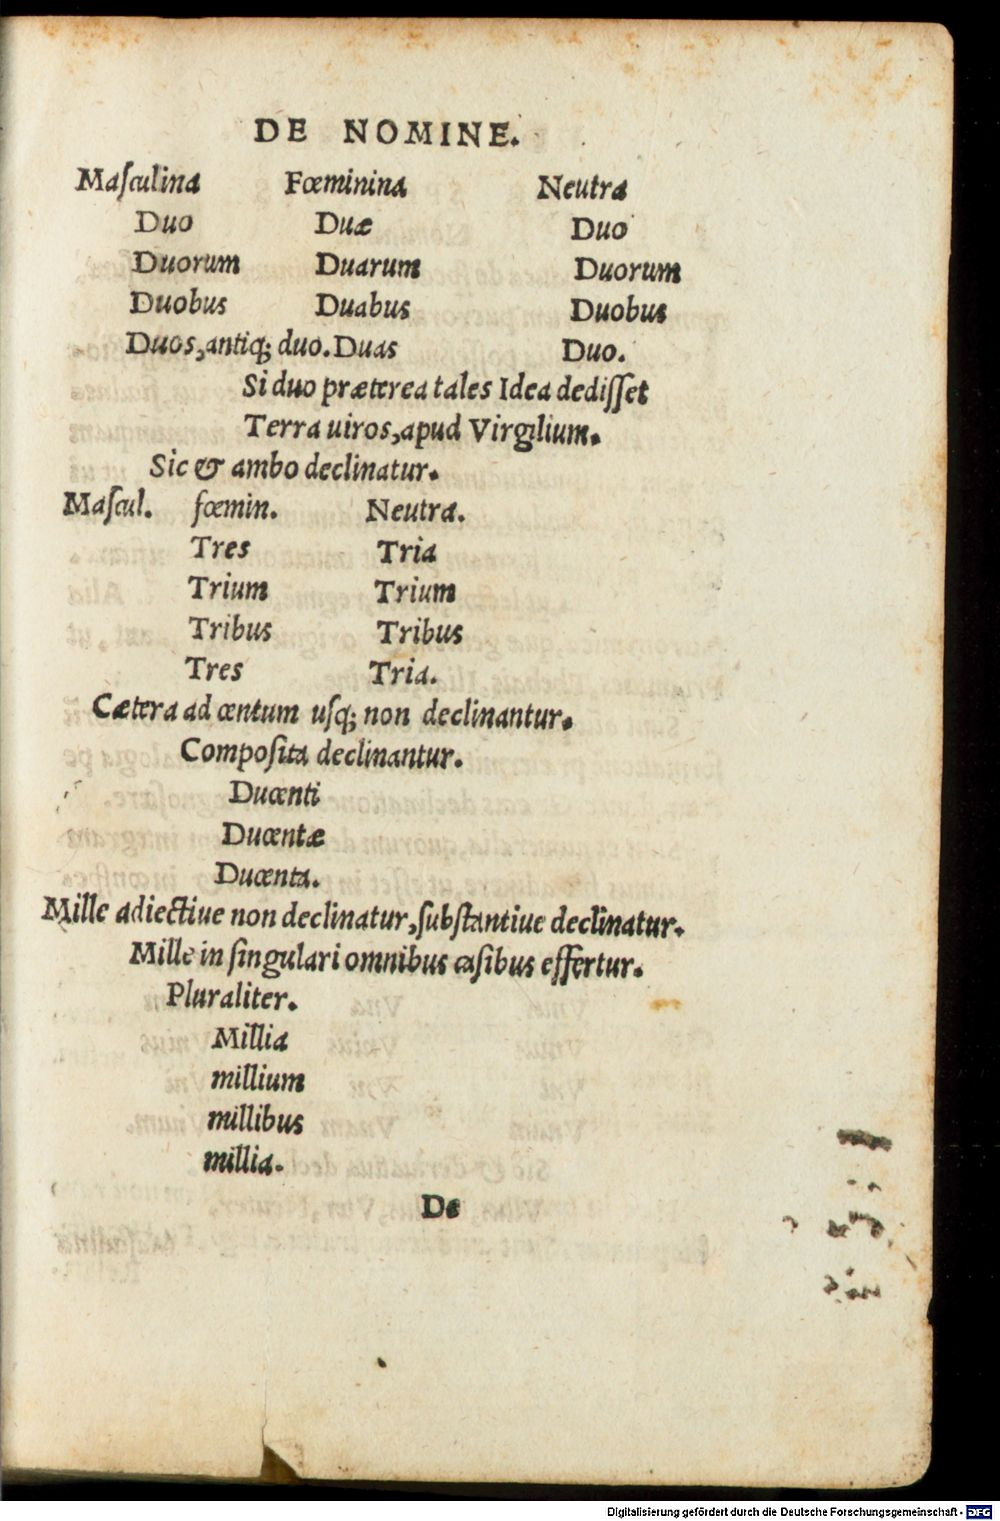 DE NOMINE.
Masculina Fœminina Neutra
Duo Duæ Duo
Duorum Duarum Duorum
Duobus Duabus Duobus
Duos, antiq; duo. Duas Duo.
Si duo præterea tales Idea dedisset
Terra uiros, apud Virgilium.
Sic & ambo declinatur.
Mascul. fœmin. Neutra.
Tres Tria
Trium Trium
Tribus Tribus
Tres Tria.
Cætera ad centum usq; non declinantur.
Composita declinantur.
Ducenti
Ducentæ
Ducenta.
Mille adiectiue non declinatur, substantiue declinatur.
Mille in singulari omnibus casibus effertur.
Pluraliter.
Millia
millium
millibus
millia.
De
Digitalisierung gefördert durch die Deutsche Forschungsgemeinschaft - DFG